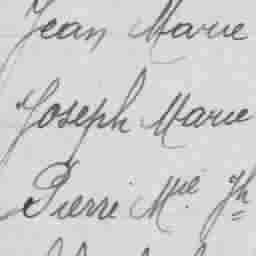 Jean Marie
Joseph Marie
Pierre Mie Jh